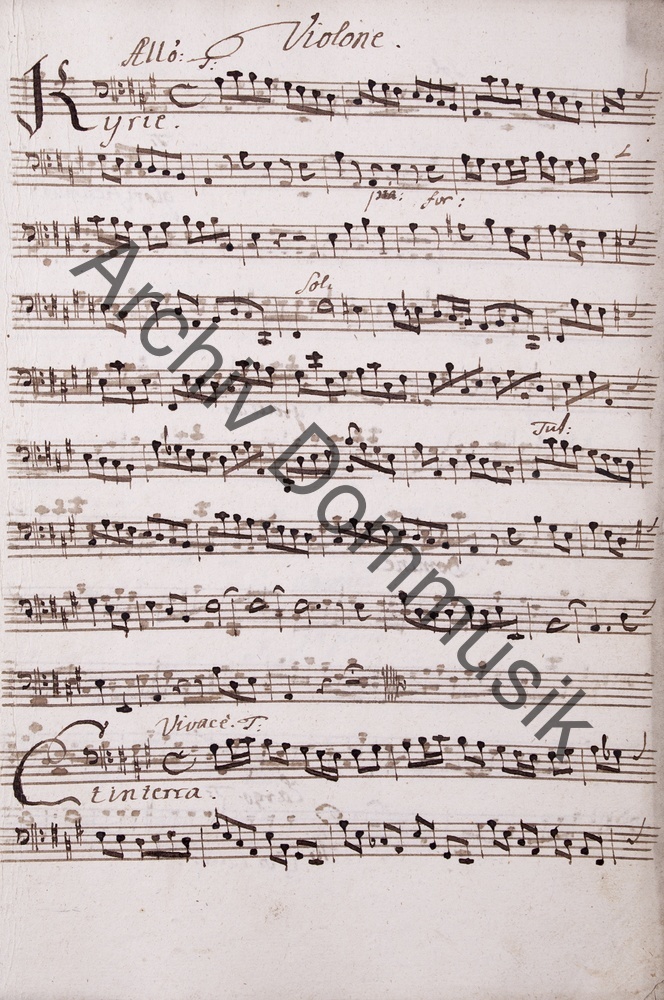 Violone.
Allo: T:
Kyrie.
pia: for:
Solo
Tut:
Vivace. T:
Et in terra.
Archiv Dommusik